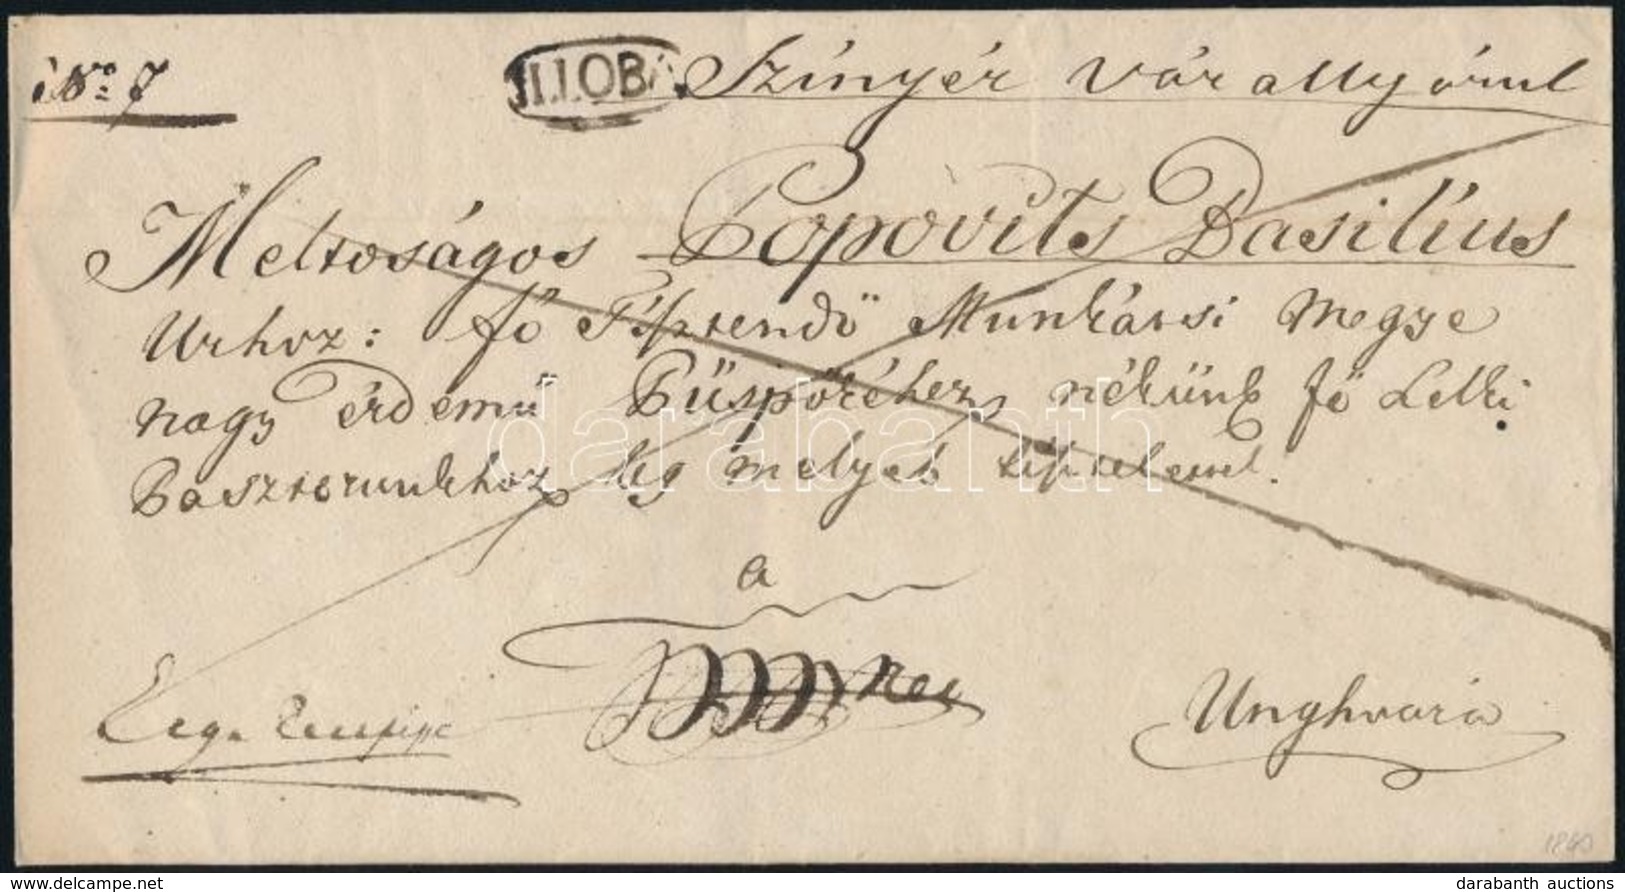 No: 7
ILLOBA Színyér várallyórul
Meltoságos Popovits Basilíus
Urhoz: fő Tisztendő Munkátsi Megye
nagy érdemű Büspökéhez, nékünk fő Lelki
Basztorunkhoz leg mélyeb tisztelettel.
a
Unghvára
1840
darabanth
delcampe.net
darabanth auctions